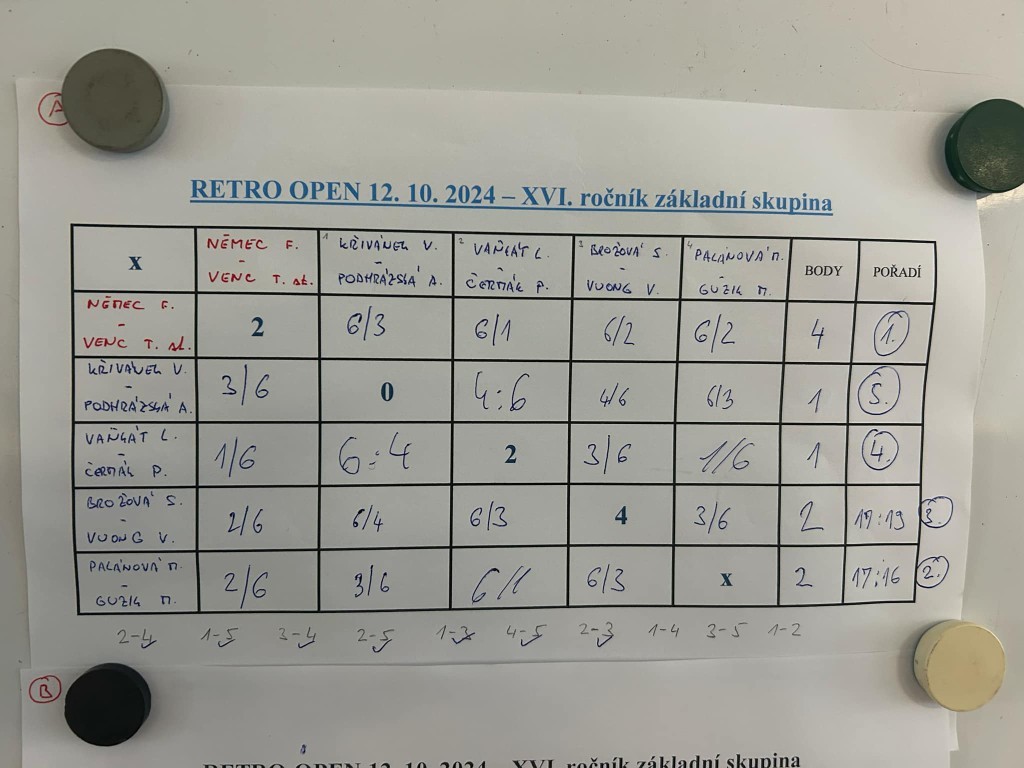 A
RETRO OPEN 12. 10. 2024 – XVI. ročník základní skupina
x NĚMEC F. - VENC T. st. 1 KŘIVÁNEK V. - PODHRÁZSKÁ A. 2 VAŇKÁT L. - ČERMÁK P. 3 BROŽOVÁ S. - VUONG V. 4 PALÁNOVÁ M. - GUZIK M. BODY POŘADÍ
NĚMEC F. - VENC T. st. 2 6/3 6/1 6/2 6/2 4 1.
KŘIVÁNEK V. - PODHRÁZSKÁ A. 3/6 0 4:6 4/6 6/3 1 5.
VAŇKÁT L. - ČERMÁK P. 1/6 6:4 2 3/6 1/6 1 4.
BROŽOVÁ S. - VUONG V. 2/6 6/4 6/3 4 3/6 2 17:19 3.
PALÁNOVÁ M. - GUZIK M. 2/6 3/6 6/1 6/3 x 2 17:16 2.
2-4 1-5 3-4 2-5 1-3 4-5 2-3 1-4 3-5 1-2
B
RETRO OPEN 12. 10. 2024 – XVI. ročník základní skupina